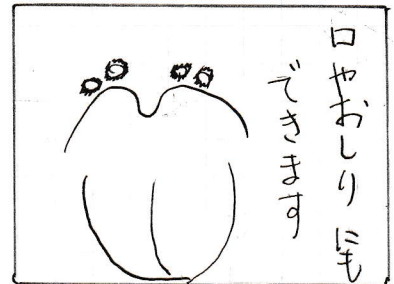 口やおしりにも
できます